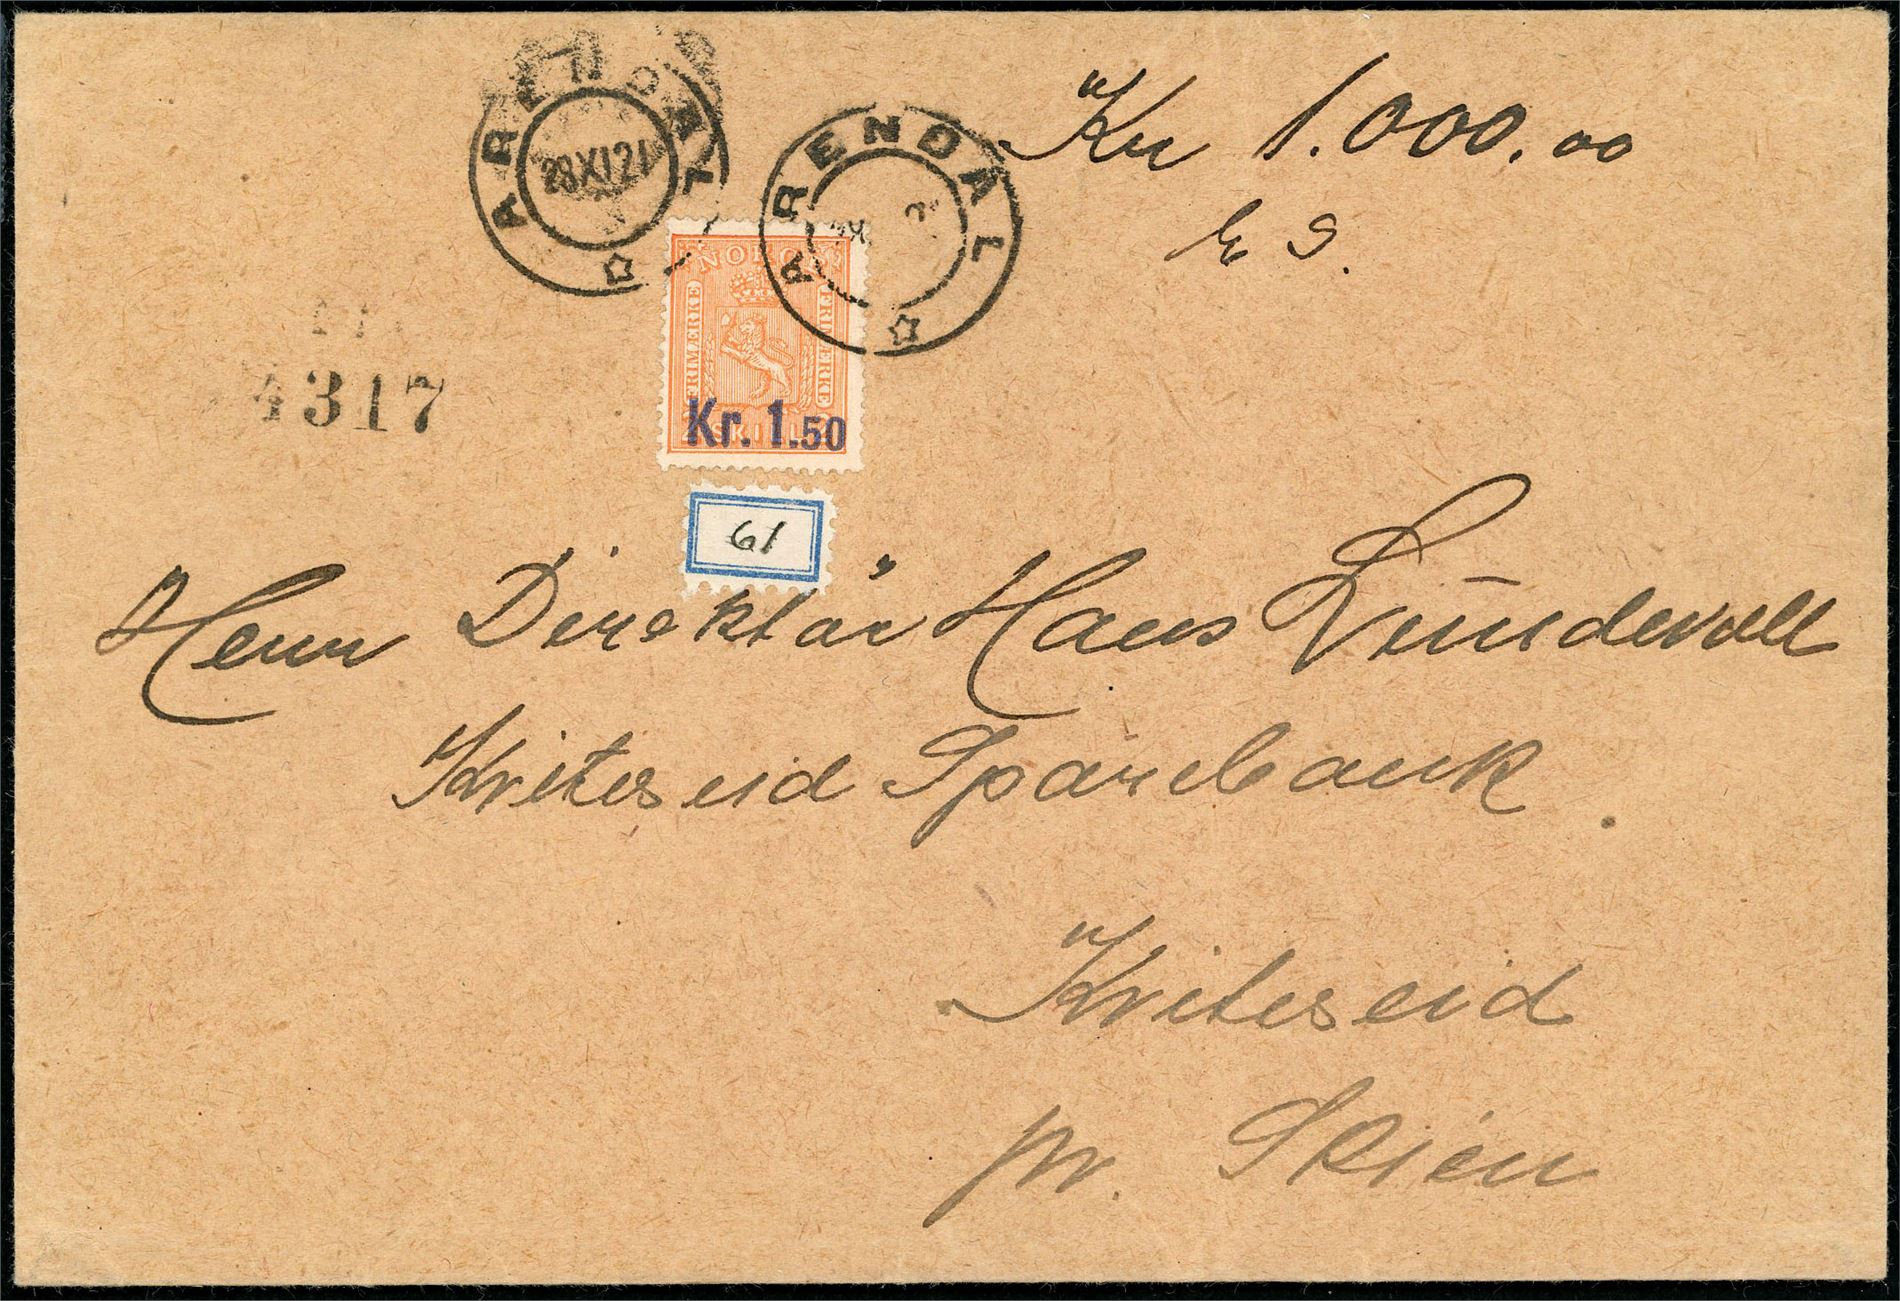 ARENDAL
28 XI 21
ARENDAL
Kr 1.000.00
E S.
NORGE
FRIMÆRKE
FRIMÆRKE
2 SKILL.
Kr. 1.50
4317
61
Herr Direktör Hans Lundevall
Kviteseid Sparebank.
Kviteseid
pr. Skien